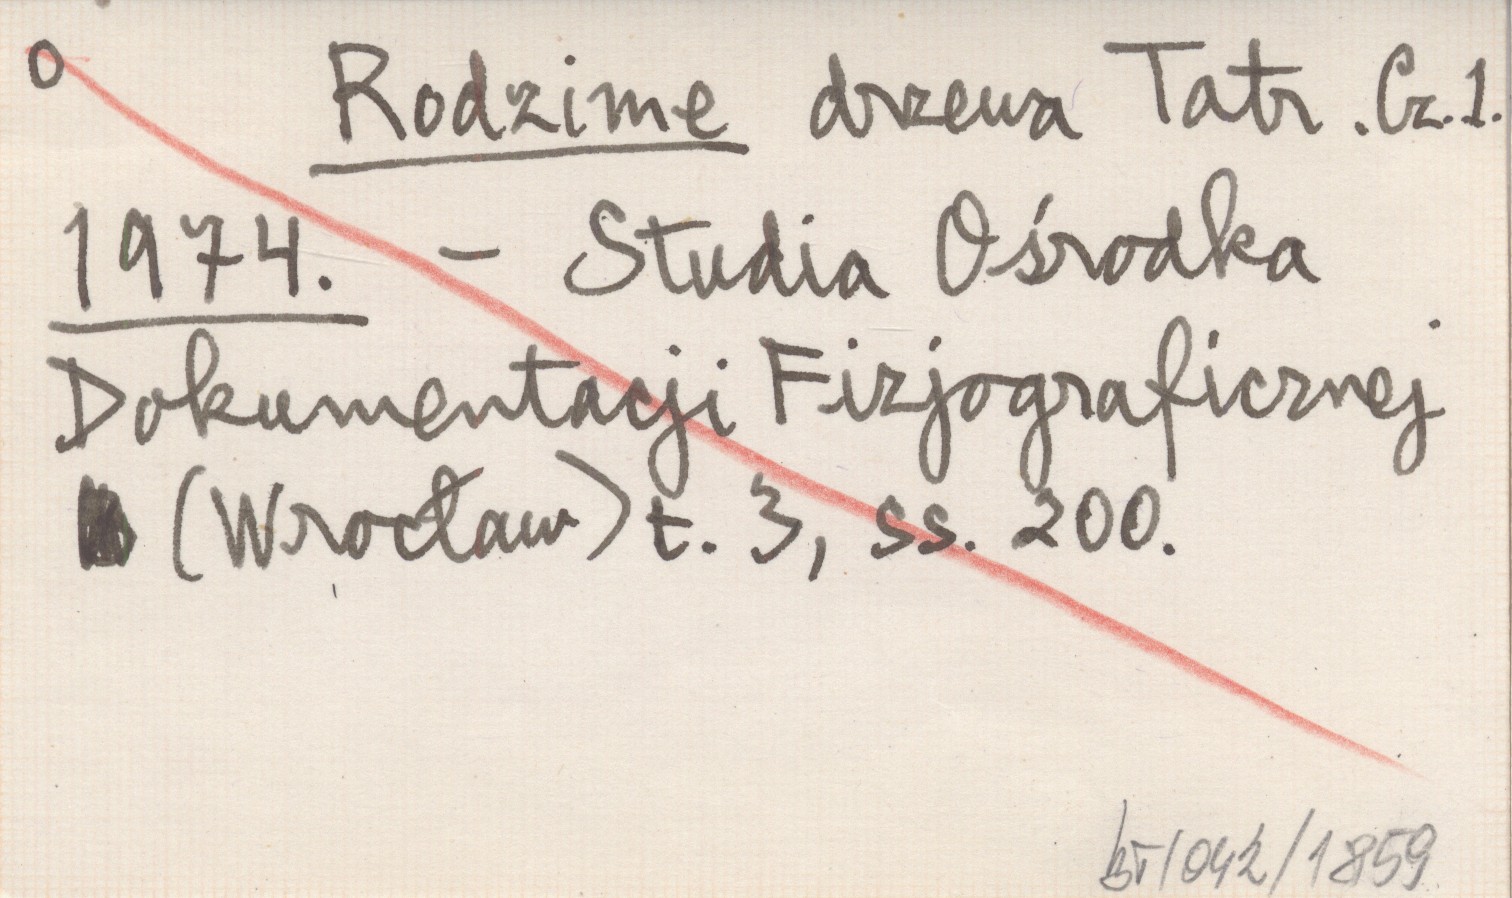 O Rodzime drzewa Tatr. Cz. 1.
1974. - Studia Ośrodka
Dokumentacji Fizjograficznej
(Wrocław) t. 3, ss. 200.
BT/042/1859